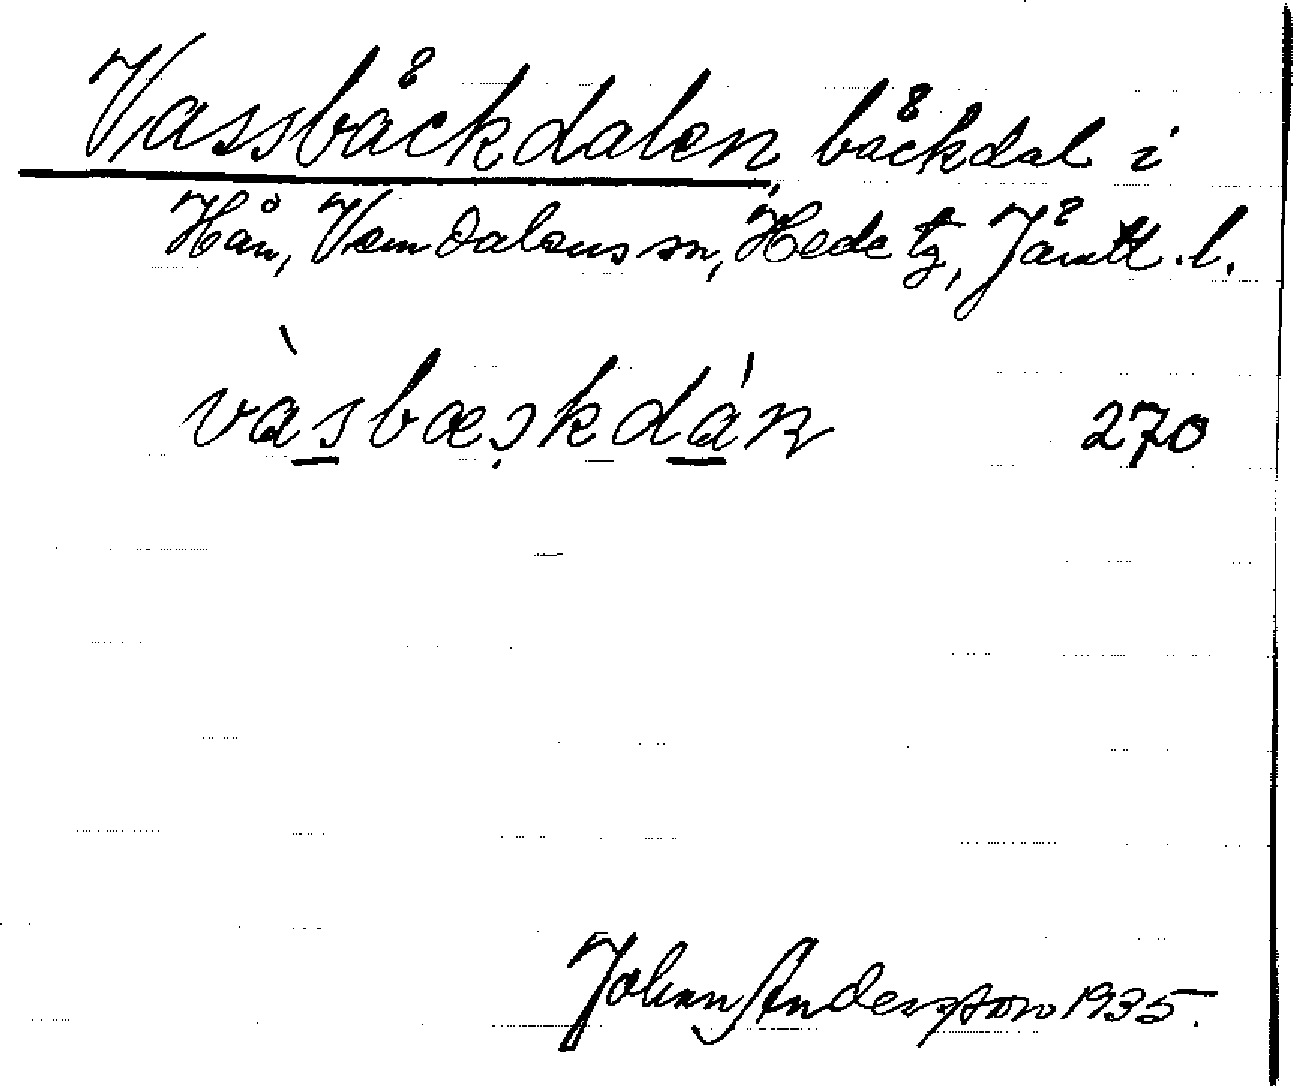 Vassbäckdalen, bäckdal i
Hån, Vemdalens sn, Hede tg, Jämtl. l.
270
Johan Andersson 1935.